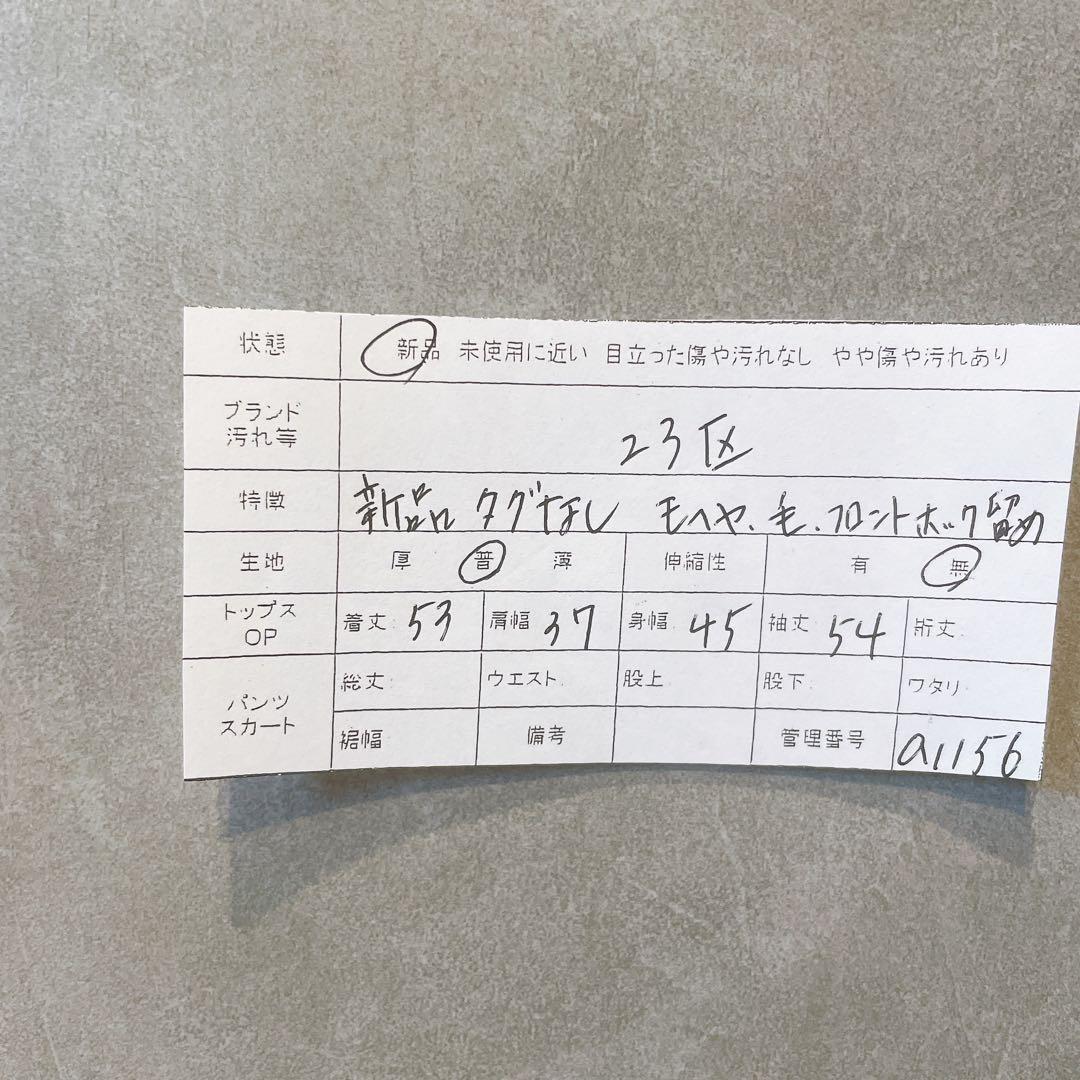 状態 新品 未使用に近い 目立った傷や汚れなし やや傷や汚れあり
ブランド
汚れ等
23区
特徴 新品 タグなし モヘヤ、毛、フロントホック留め
生地 厚 普 薄 伸縮性 有 無
トップス
OP
着丈: 53 肩幅: 37 身幅: 45 袖丈: 54 裄丈:
パンツ
スカート
総丈: ウエスト: 股上: 股下: ワタリ:
裾幅: 備考 管理番号 a1156